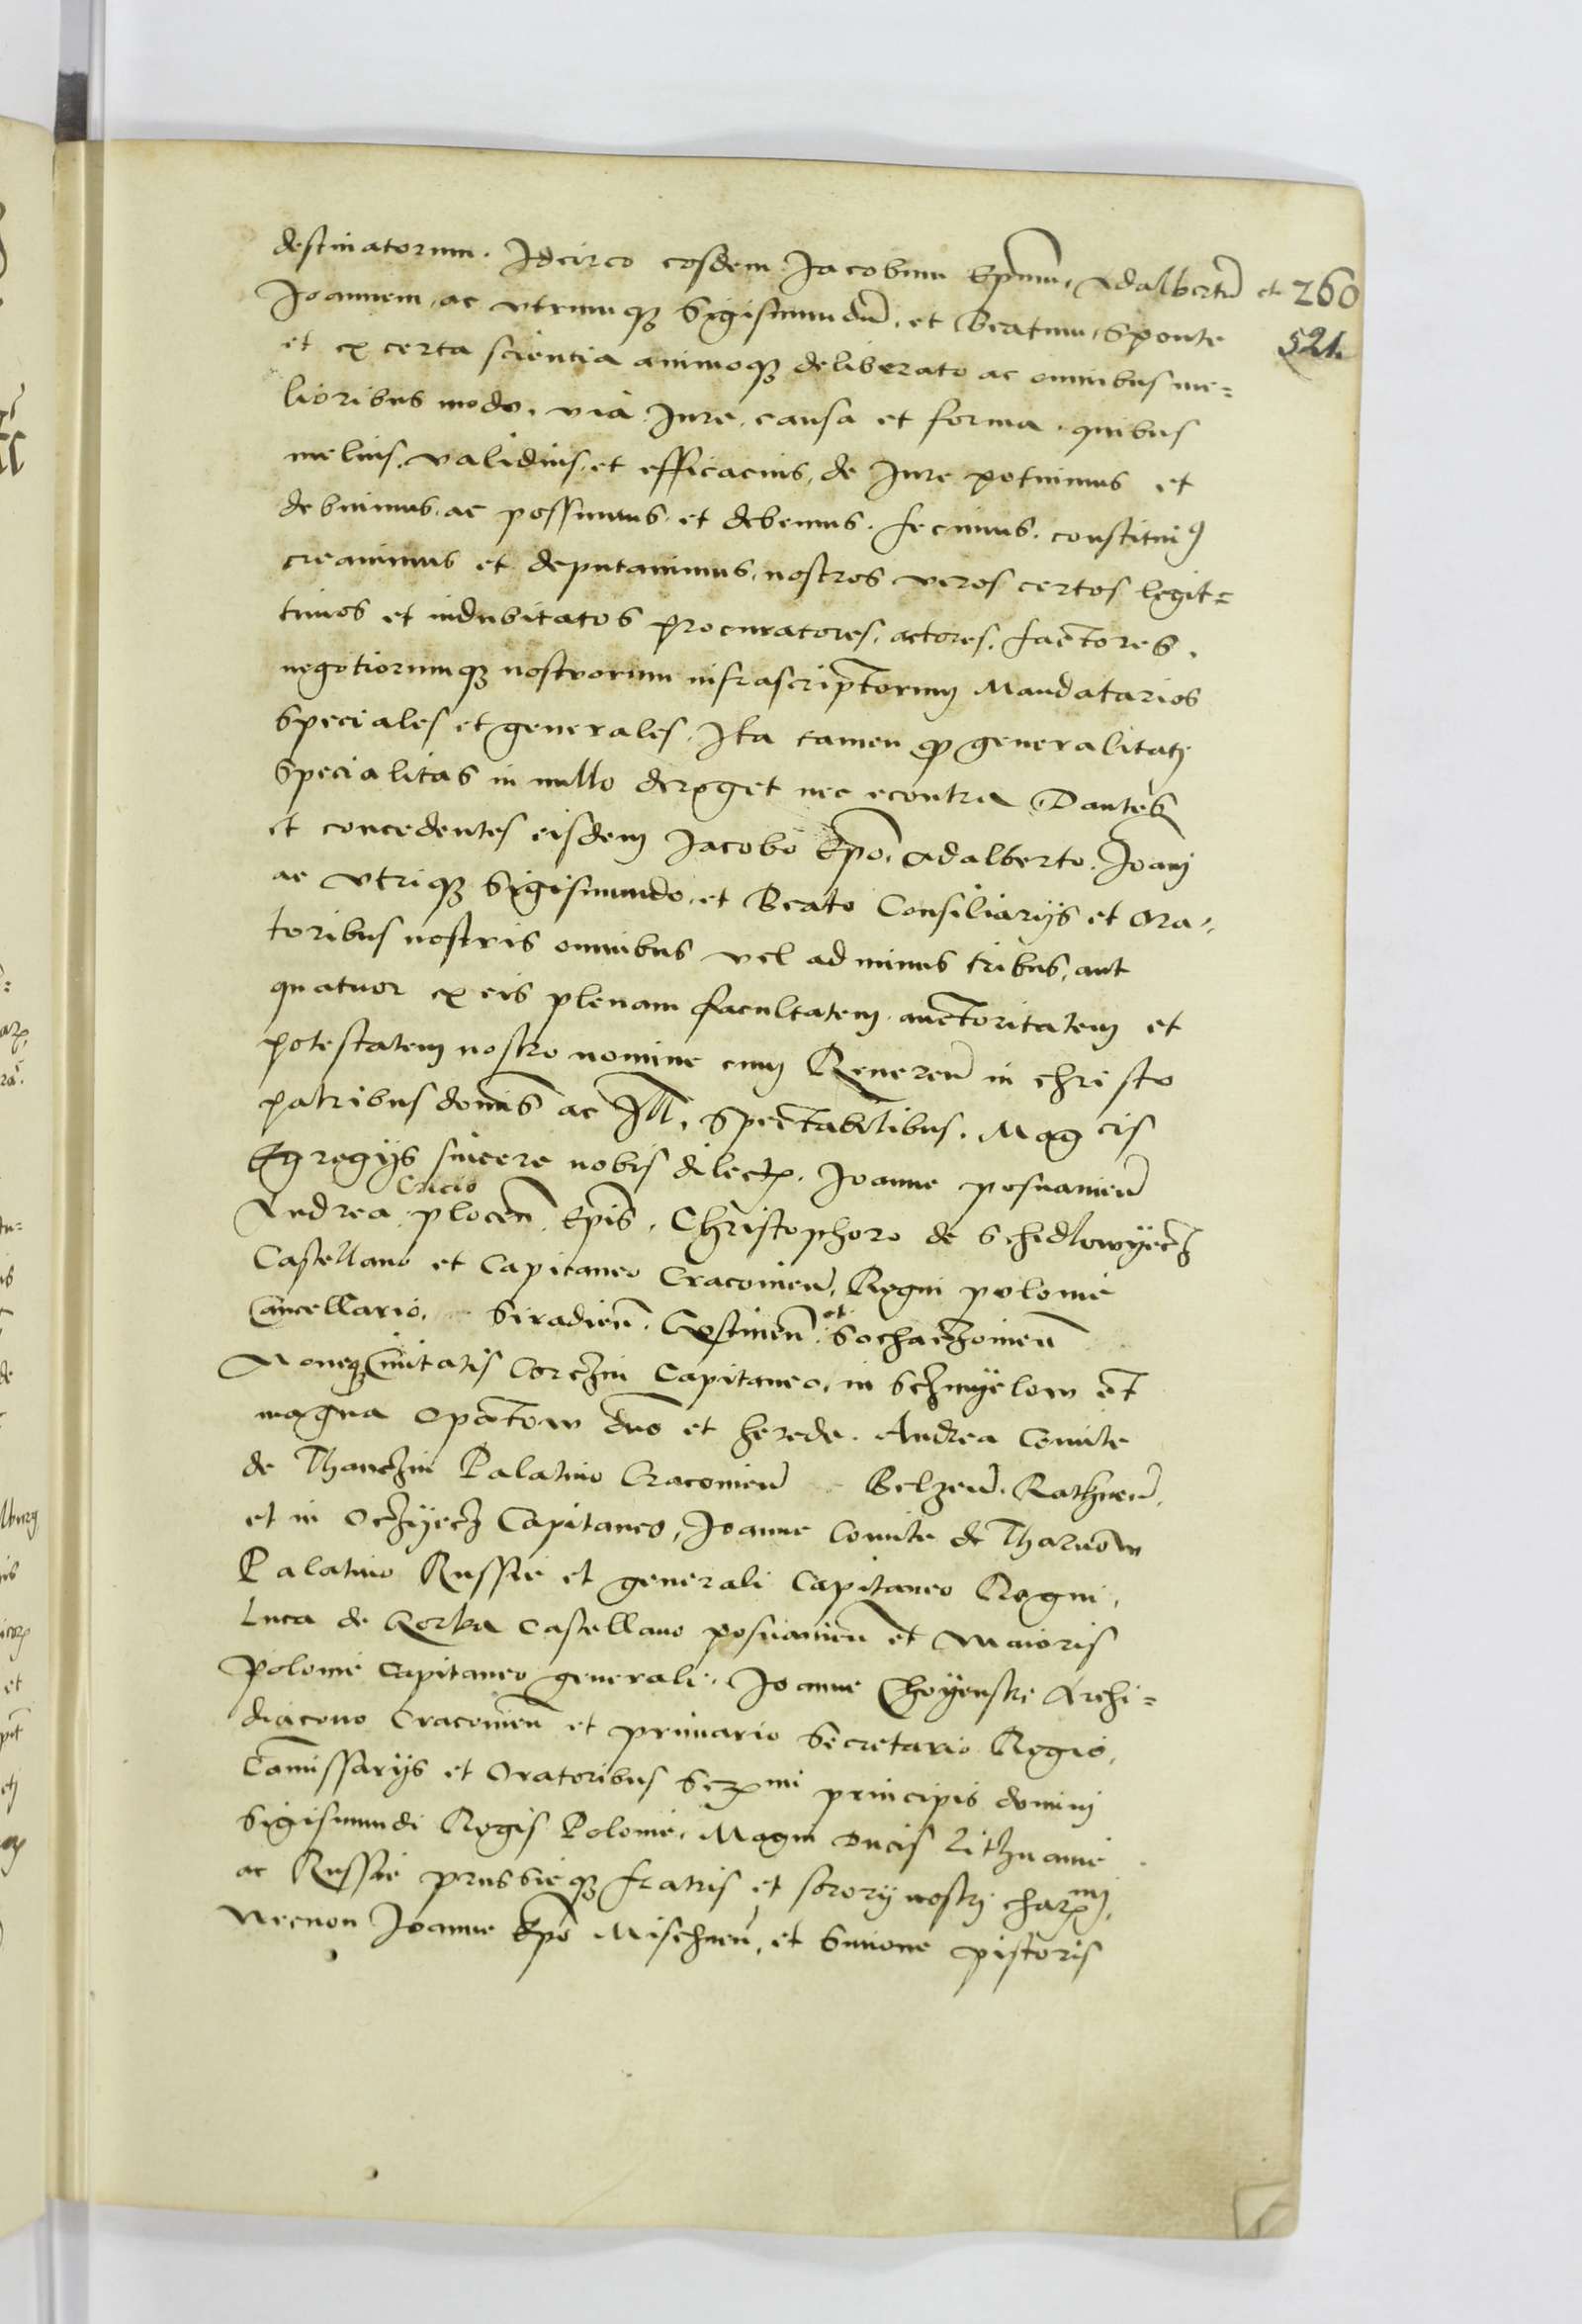 destinatorum. Idcirco eosdem Iacobum Ep̃um, Adalbertũ et
260
Ioannem, ac utrumq; Sigismundũ, et Beatum, Sponte
521.
et ex certa scientia animoq; deliberato ac omnibus me=
lioribus modo, via Iure, causa et forma, quibus
melius, validius, et efficacius, de Iure potuimus et
debuimus, ac possumus et debemus. fecimus, constituiꝰ
creauimus et deputauimus, nostros veros certos legit=
timos et indubitatos procuratores, actores, factores,
negotiorumq; nostrorum infrascriptorum Mandatarios
Speciales et generales. Ita tamen ꝙ generalitati
Specialitas in nullo deroget nec econtra Dantes
et concedentes eisdem Iacobo Ep̃o, Adalberto, Ioani
ac Vtriq; Sigismundo, et Beato Consiliarijs et Ora=
toribus nostris omnibus vel ad minus tribus, aut
quatuor ex eis plenam facultatem, auctoritatem et
potestatem nostro nomine cum Reueren̄ in christo
patribus domĩs ac Ill, Spectabilibus, Mag cis
Egregijs sincere nobis dilect. Ioanne posnanien̄
Cricio
Andrea plocen̄ Ep̃is, Christophoro de Schidlowyecz
Castellano et Capitaneo Cracouien̄, Regni polonie
Cancellario, Siradien̄, Gostinen̄ et Sochaczouien̄
Noueq; Ciuitatis Corczin Capitaneo, in Schmyelow et
magna Opatow dño et herede. Andrea Comite
de Thanczin Palatino Cracouien̄ Belzen̄, Rathnen̄,
et in Oczyecz Capitaneo, Ioanne Comite de Tharnow
Palatino Russie et generali Capitaneo Regni,
Luca de Gorka Castellano posnanien̄ et Maioris
Polonie Capitaneo generali. Ioanne Choyenski Archi=
diacono Cracouien̄ et primario Secretario Regio,
Comissarijs et Oratoribus Serᵐⁱ principis domini
Sigismundi Regis Polonie, Magni Ducis Lithuanie
ac Russie prussieq; fratris et sorory nostri charᵐⁱ,
Necnon Ioanne Ep̃o Mischnen̄, et Simone pistoris